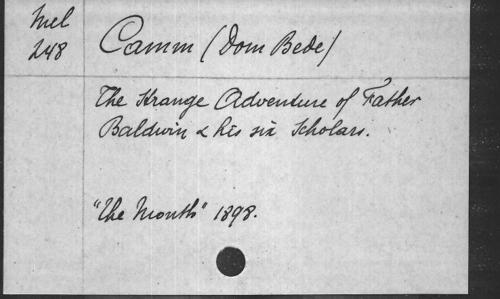 Mel
248
Camm (Dom Bede)
The Strange Adventure of Father
Baldwin & his six Scholars.
"The Month" 1898.